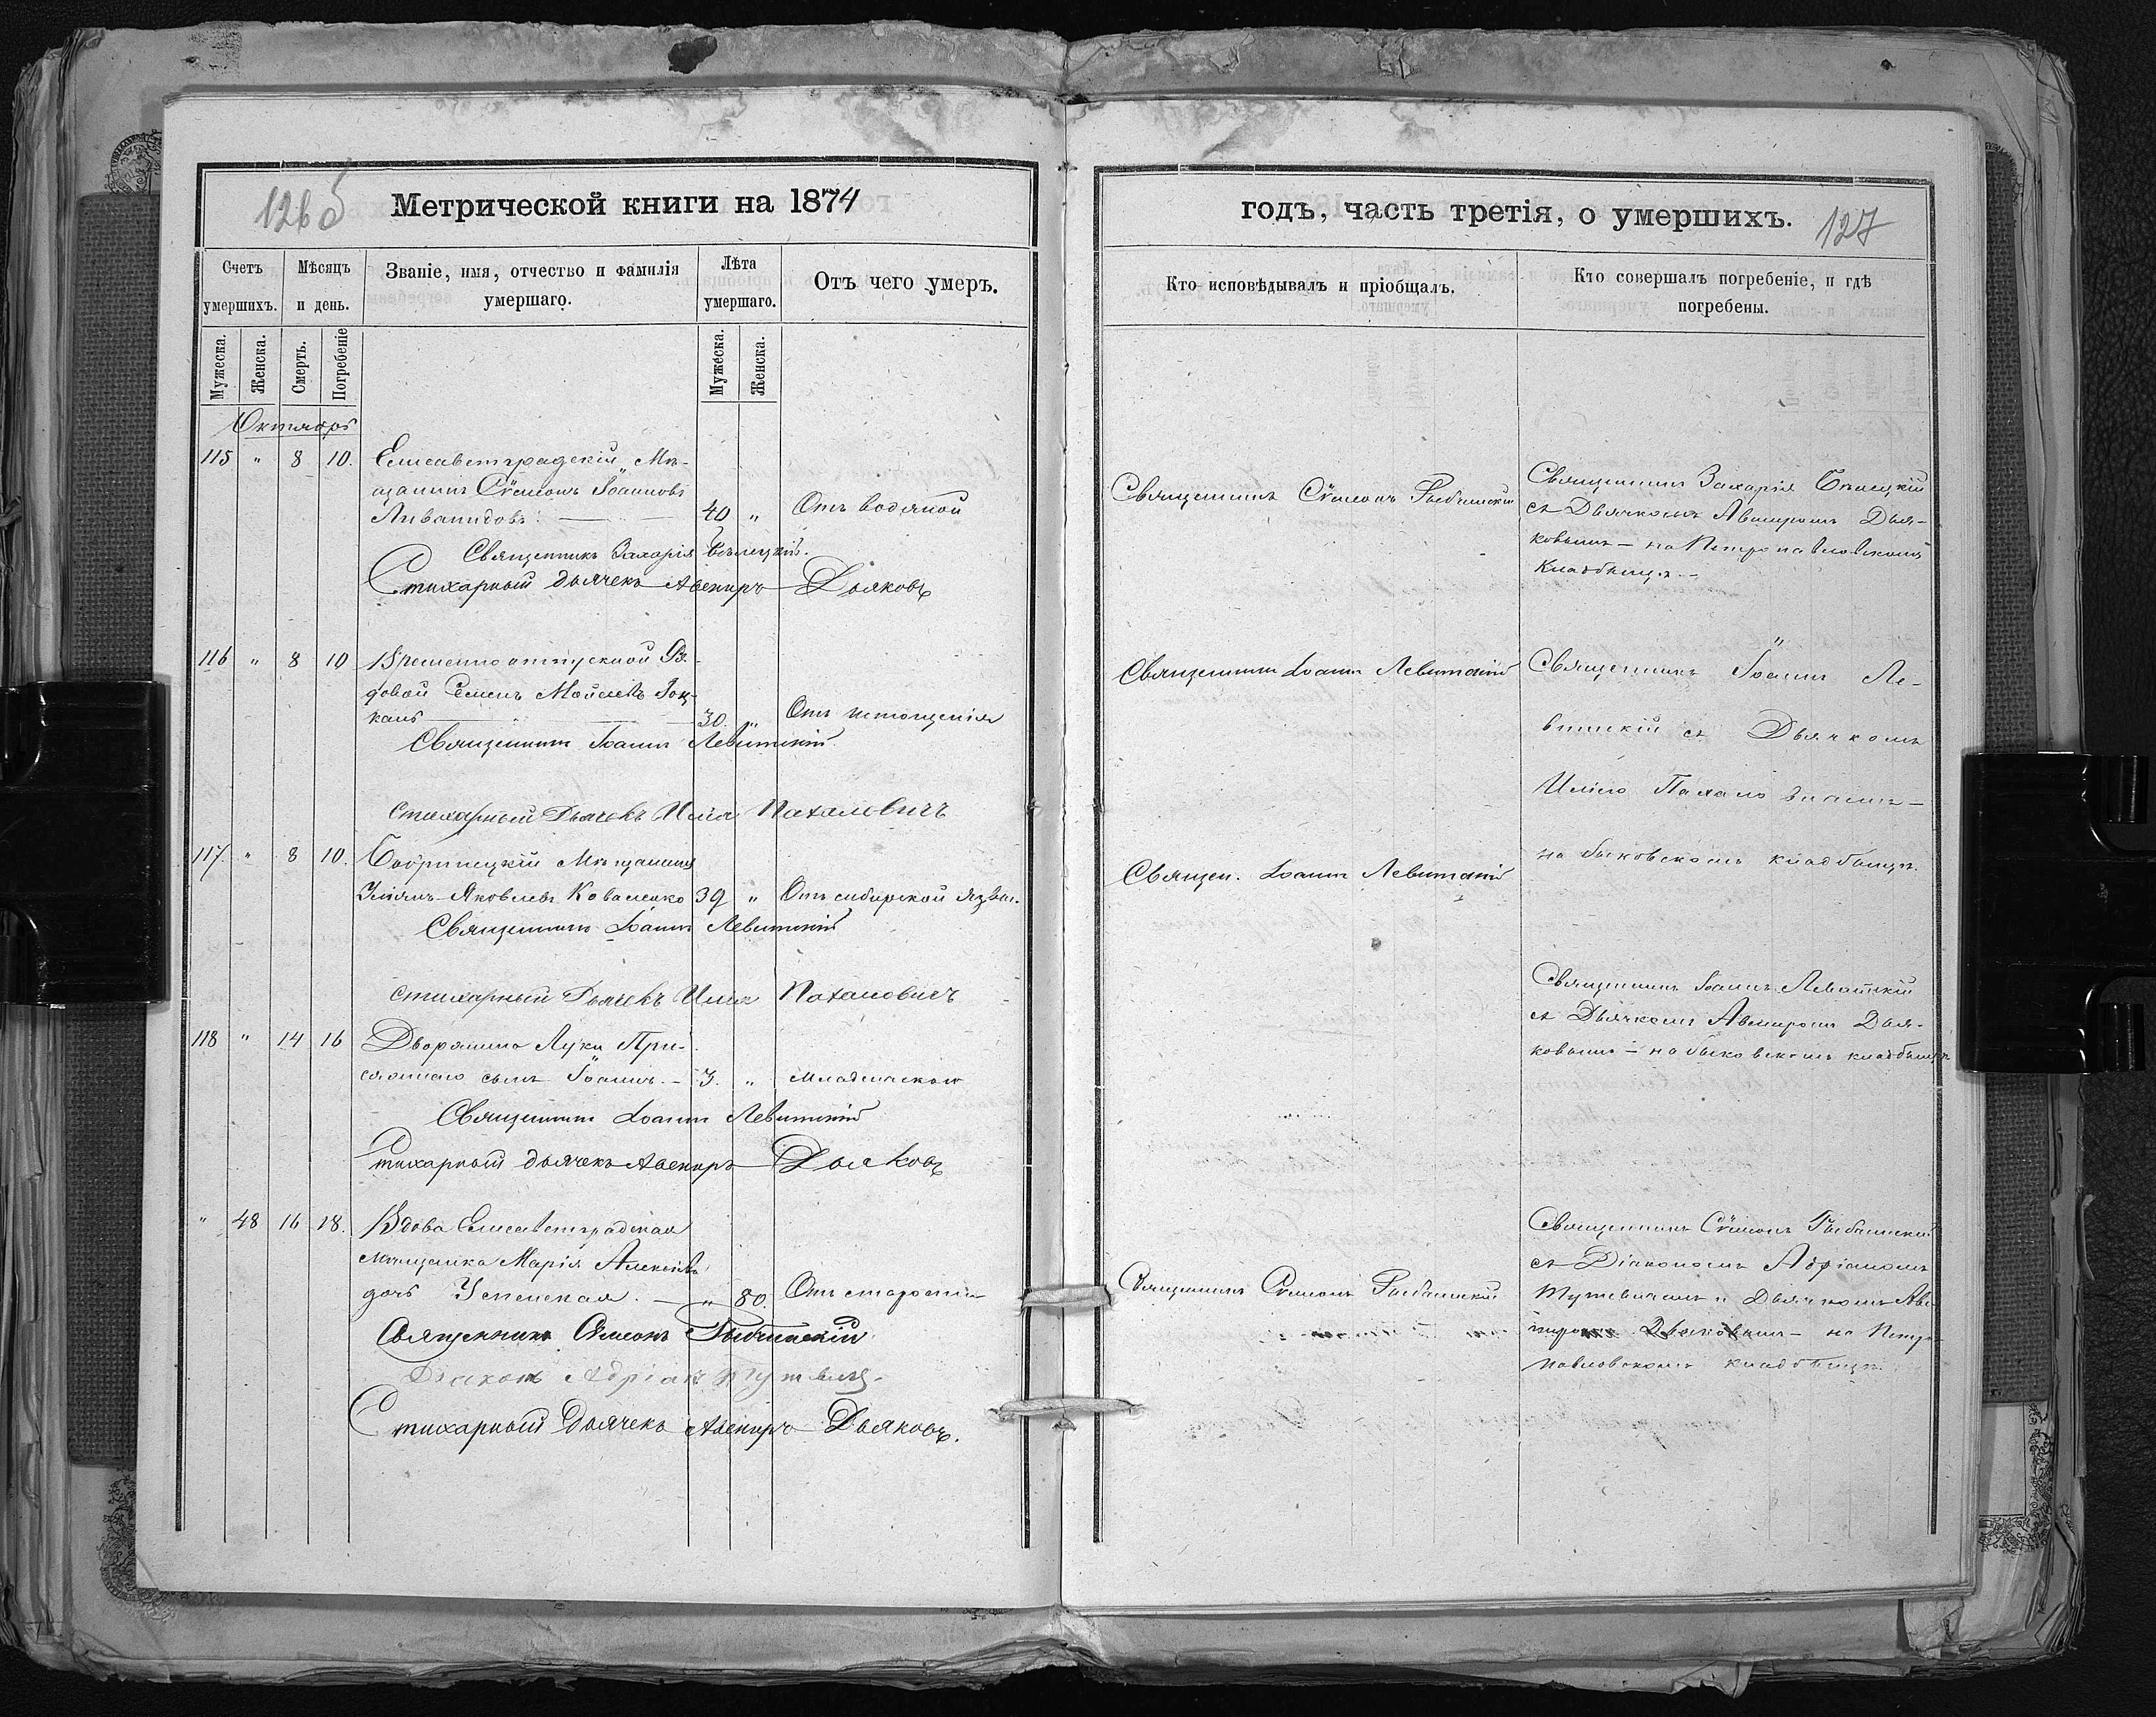 126 б
Метрической книги на 1874
Счетъ умершихъ.
Мѣсяцъ и день.
Званіе, имя, отчество и фамилія умершаго.
Лѣта умершаго.
Отъ чего умеръ.
Мужеска.
Женска.
Смерть.
Погребеніе
Мужеска.
Женска.
Октябрь
115 " 8 10. Елисаветградскій Мѣ-
щанинъ Сѵмеонъ Іоанновъ
Ливанидовъ. — 40 " Отъ водяной
Священникъ Захарія Бѣлецкій.
Стихарный дьячекъ Авениръ Дьяковъ
116 " 8 10 Временно отпускной Ря-
довой Семенъ Мойсеевъ
канъ — 30. " Отъ истощенія
Священникъ Іоаннъ Левитскій.
Стихарный Дьячекъ Илія Пахаловичъ
117. " 8 10. Бобринецкій Мѣщанинъ
Яковлевъ Коваленко 39 " Отъ сибирской язвы.
Священникъ Іоаннъ Левитскій
Стихарный Дьячекъ Илія Пахаловичъ
118 " 14 16 Дворянина Луки При-
сынъ Іоаннъ. — 3. " Младенческою
Священникъ Іоаннъ Левитскій
Стихарный дьячекъ Авениръ Дьяковъ
" 48 16 18. Вдова Елисаветградская
мѣщанка Марія Алексѣева
дочь Успенская. — " 80. Отъ старости
Священникъ Сѵмеонъ Рыбчинскій
Діаконъ Адріанъ
Стихарный Дьячекъ Авениръ Дьяковъ.
годъ, часть третія, о умершихъ.
127
Кто исповѣдывалъ и пріобщалъ.
Кто совершалъ погребеніе, и гдѣ погребены.
Священникъ Сѵмеонъ Рыбчинскій
Священникъ Захарія Бѣлецкій
съ Дьячкомъ Авениромъ Дья-
ковымъ — на Петропавловскомъ
Кладбищѣ. —
Священникъ Іоаннъ Левитскій
Священникъ Іоаннъ Ле-
витскій съ Дьячкомъ
Иліею Пахаловичемъ —
на Быковскомъ кладбищѣ.
Священ. Іоаннъ Левитскій
Священникъ Іоаннъ Левитскій
съ Дьячкомъ Авениромъ Дья-
ковымъ — на Быковскомъ кладбищѣ
Священникъ Сѵмеонъ Рыбчинскій
Священникъ Сѵмеонъ Рыбчинскій
съ Діакономъ Адріаномъ
и Дьячкомъ Аве-
ниромъ Дьяковымъ — на Петро-
павловскомъ кладбищѣ.